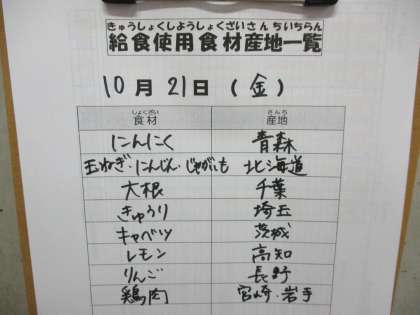 きゅうしょくしようしょくざいさんちいちらん
給食使用食材産地一覧
10月21日(金)
しょくざい さんち
食材 産地
にんにく 青森
玉ねぎ・にんじん・じゃがいも 北海道
大根 千葉
きゅうり 埼玉
キャベツ 茨城
レモン 高知
りんご 長野
鶏肉 宮崎・岩手